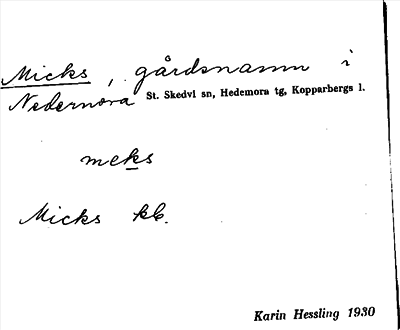 Micks, gårdsnamn i
Nedernora St. Skedvi sn, Hedemora tg, Kopparbergs l.
meks
Micks kb.
Karin Hessling 1930